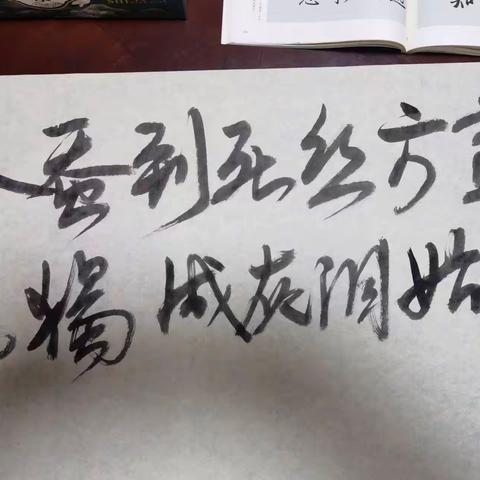 蚕到死丝方
烛成灰泪始